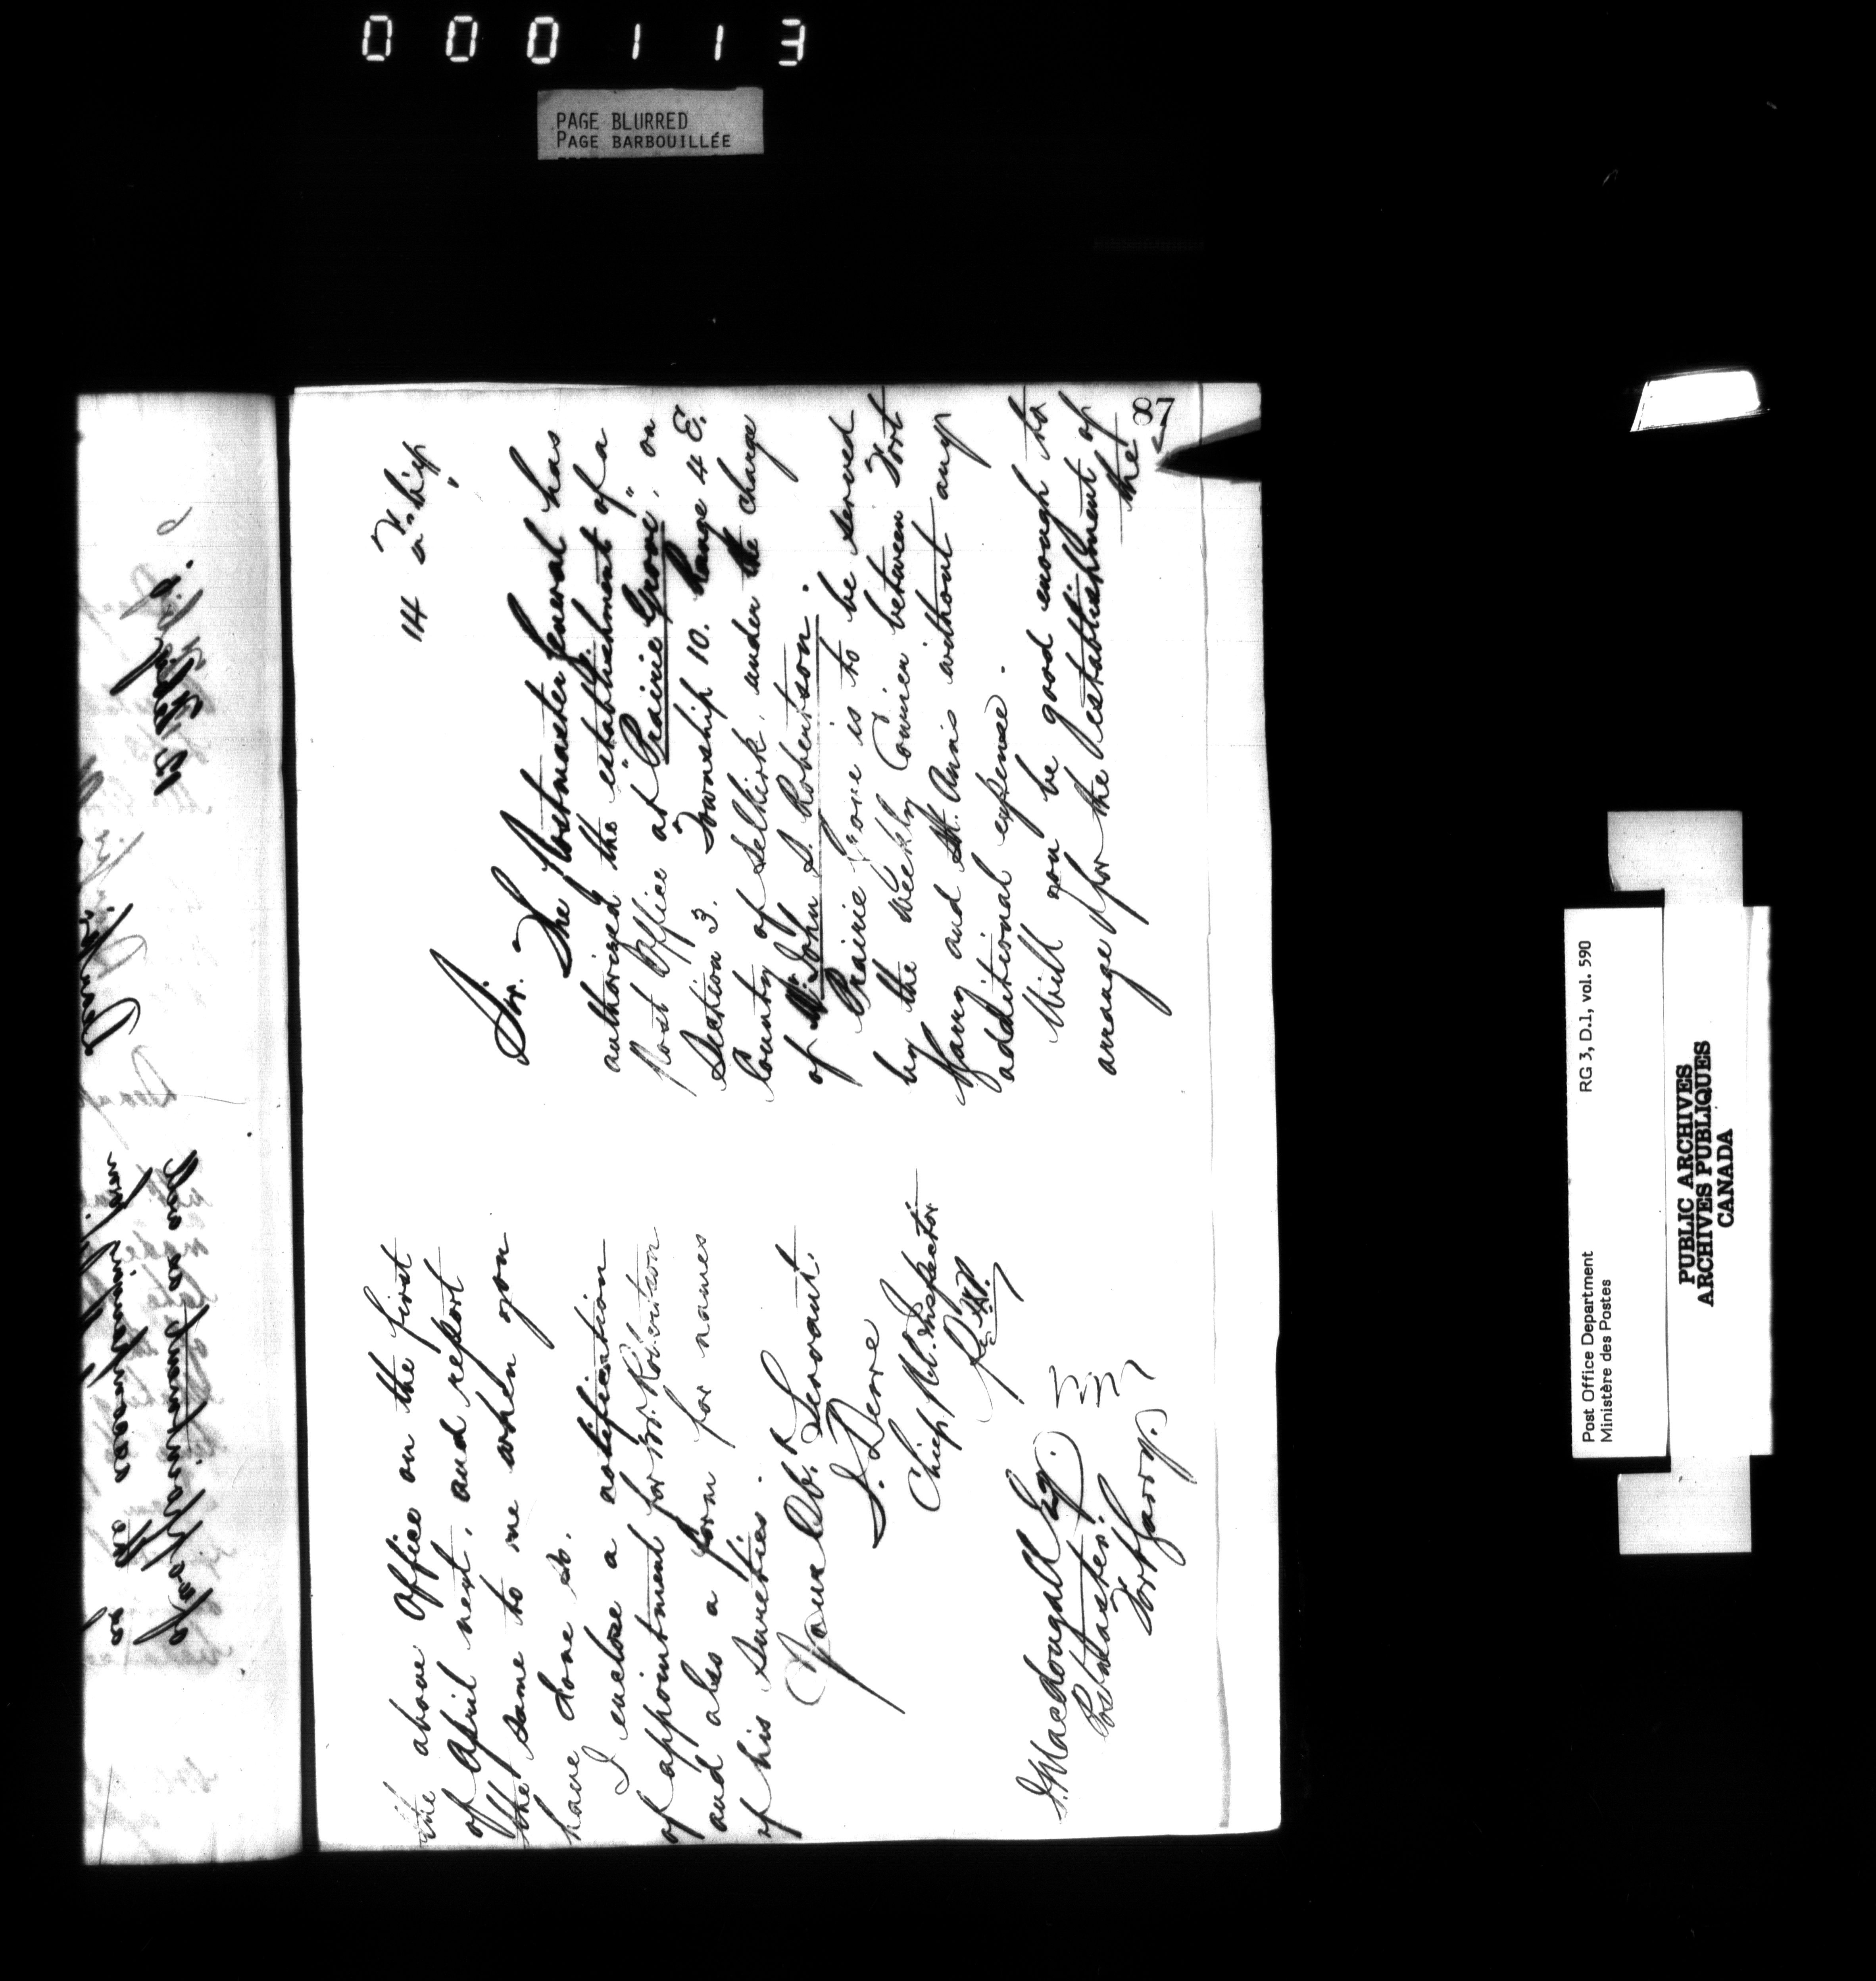 000113
PAGE BLURRED
PAGE BARBOUILLÉE
14
Sir.
The Postmaster General has
authorized the establishment of a
Post Office at "Prairie Grove", on
Section 3. Township 10. Range 4 E.
County of Selkirk, under the charge
of Mr. John S. Robertson.
Prairie Grove is to be served
by the Weekly Courier between Fort
Garry and St. Anns without any
additional expense.
Will you be good enough to
arrange for the establishment of
the
87
the above Office on the first
of April next, and report
the same to me when you
have done so.
I enclose a notification
of appointment for Mr. Robertson
and also a form for names
of his Sureties.
Your Obt. Servant.
J. Dewe
Chief P.O. Inspector
J. Macdougall Esq.
Postmaster.
Fort Garry.
Post Office Department
Ministère des Postes
RG 3, D.1, vol. 590
PUBLIC ARCHIVES
ARCHIVES PUBLIQUES
CANADA